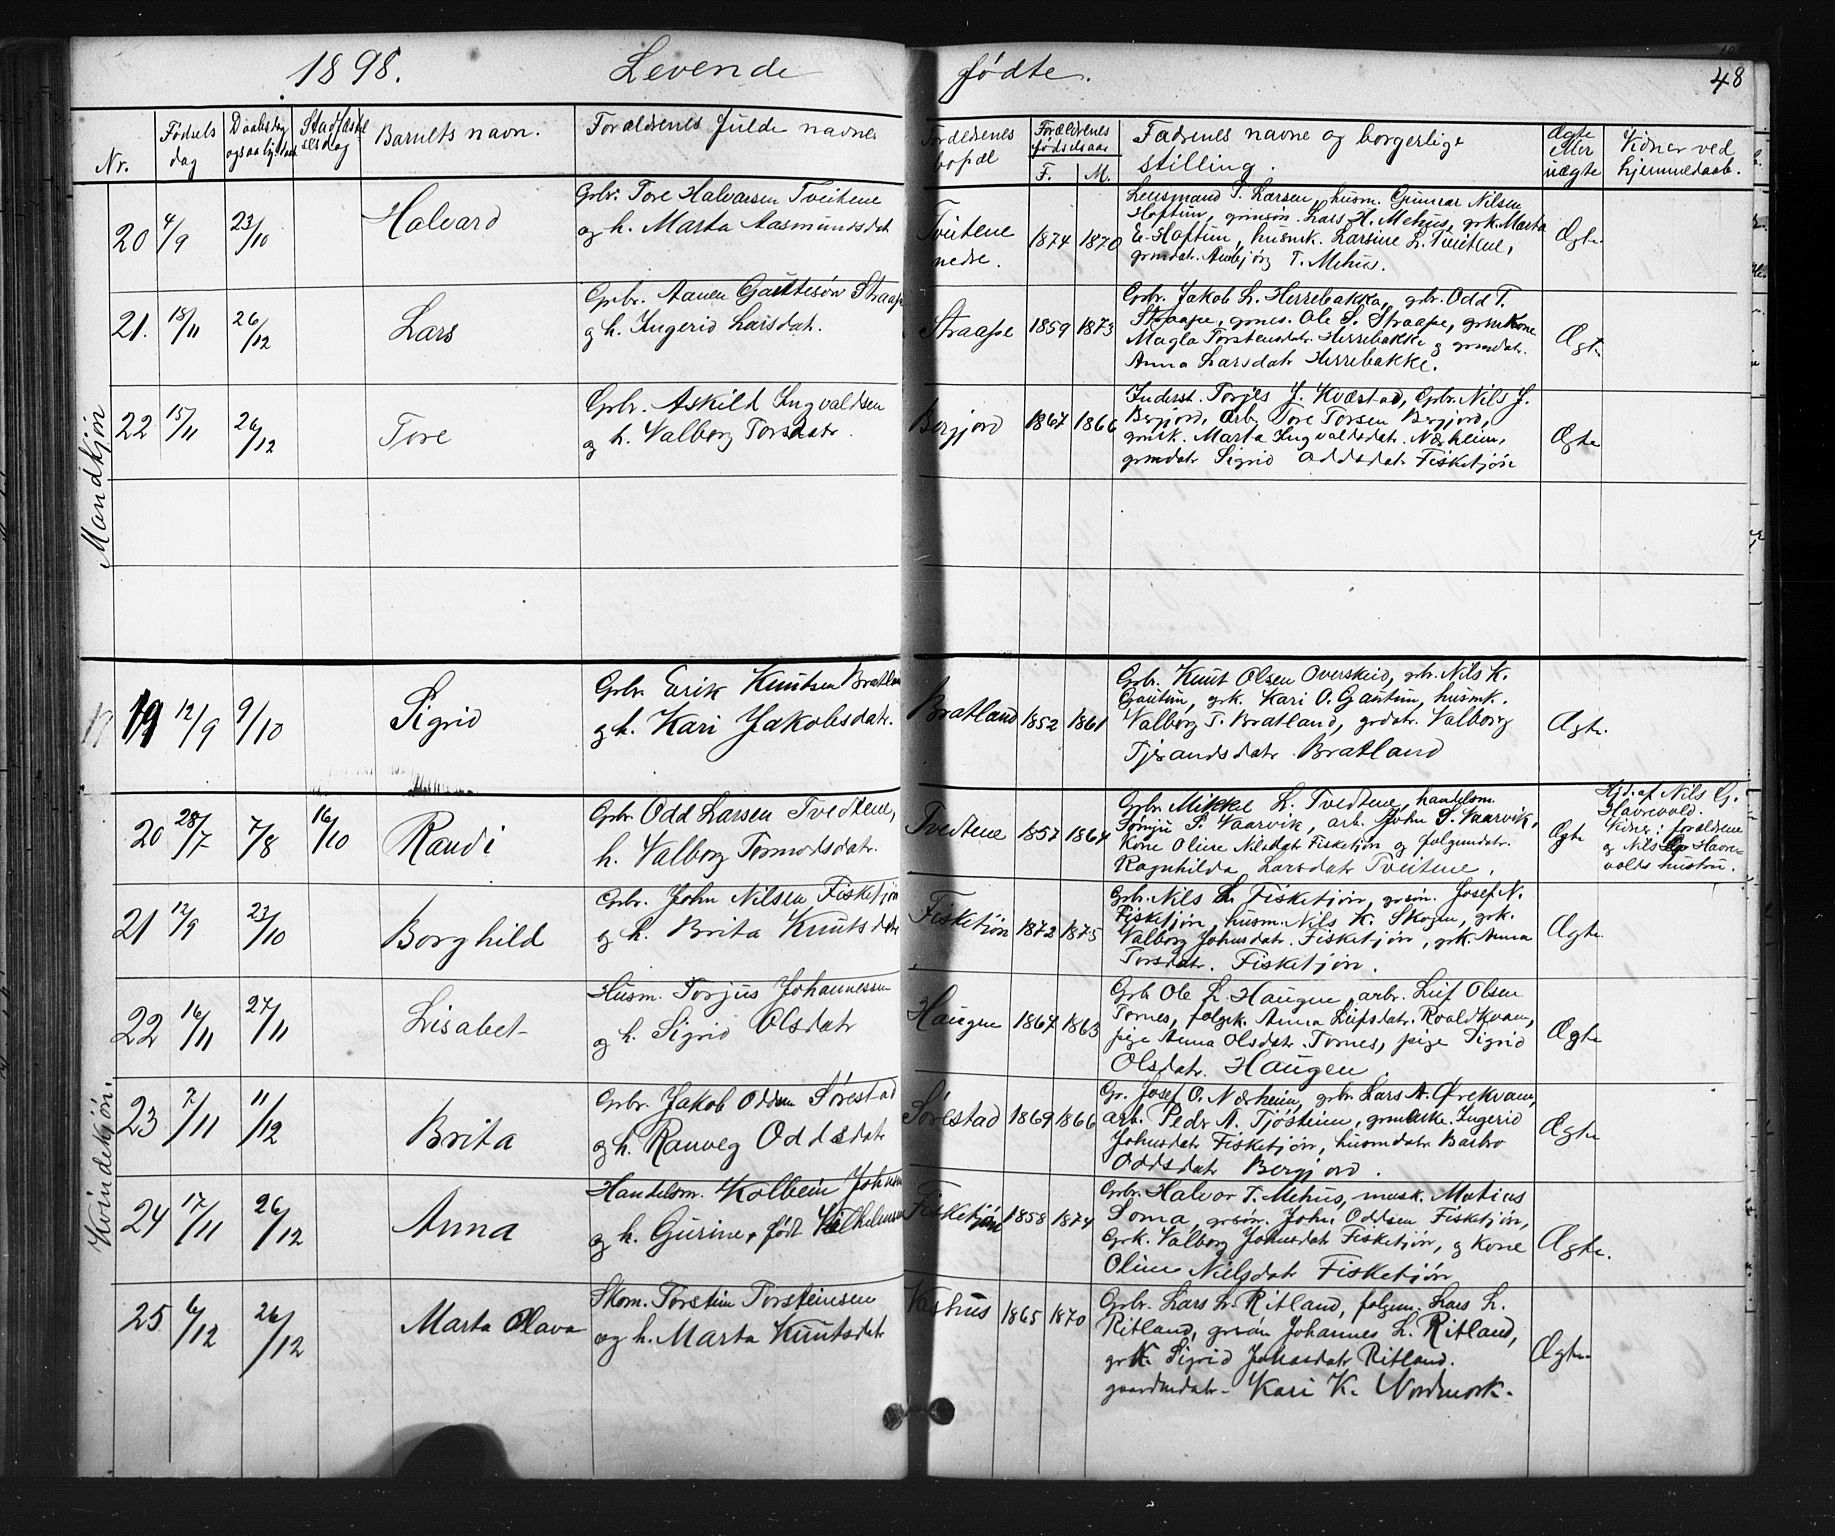 1898. Levende fødte. 48
Nr. Fødsels dag Barnets navn. Forældrenes fulde navne Forældrenes bopæl Forældrenes fødselsaar F. M. Fadrenes navne og borgerlige stilling. Ægte eller uægte Vidner ved hjemmedaab.
Mandkjøn
20 4/9 23/10 Halvard
Grbr. Tore Halvorsen Tveitene
og h. Marta Aasmundsdat
Tveitene nedre. 1874 1870
Lensmand T. Larsen, husm. Gunnar Nilsen
Hoftun, grmsøn. Lars H. Mehus, grk. Marta
E. Hoftun, husmk. Larsine L. Tveitene,
grmdatr. Ambjørg T. Mehus.
Ægte.
21. 18/11 26/12 Lars
Grbr. Aanen Gauttesøn Straape
og h. Ingerid Larsdat.
Straape 1859 1873
Grbr. Jakob L. Herrebakka, grbr. Odd T.
Straape, grmss. Ole S. Straape, grmkone
Magla Torstensdatr. Herrebakke og grmdatr.
Anna Larsdatr Herrebakke.
Ægte
22 15/11 26/12 Tore
Grbr. Askild Ingvaldsen
og h. Valborg Torsdatr.
Bergjord 1867 1866
Inderst. Torjls J. Kvæstad, Grbr. Nils J.
Bergjord, arb. Tore Torsen Bergjord,
grmk. Marta Ingvaldsdatr. Nærheim,
grmdatr Sigrid Oddsdatr. Fisketjøn
Ægte
Kvindekjøn.
19 12/9 9/10 Sigrid
Grbr. Eirik Knutsen Bratland
og h. Kari Jakobsdatr.
Bratland 1852 1861
Grbr. Knut Olsen Overskeid, grbr. Nils K.
Gautun, grk. Kari O. Gautun, husmk.
Valborg T. Bratland, grdatr. Valborg
Tjerandsdatr Bratland
Ægte.
20 28/7 7/8 16/10 Randi
Grbr Odd Larsen Tvedtene,
h. Valborg Tormodsdatr.
Tvedtene 1857 1864
Grbr. Mikkel L. Tvedtene, handelsm.
Tømju S. Vaarvik, arb. John S. Vaarvik,
Kone Oline Nilsdat Fisketjøn og folgemdatr.
Ragnhilda Larsdatr Tveitene.
Ægte
Hjd. af Nils G.
Havrevold.
Vidner: forældrene
og Nils Havre-
volds hustru.
21 12/9 23/10 Borghild
Grbr. John Nilsen Fisketjøn
og h. Brita Knutsdatr
Fisketjøn 1872 1875
Grbr. Nils L. Fisketjøn, grsøn. Josef N.
Fisketjøn, husm. Nils K. Skogen, grk.
Valborg Johnsdatr. Fisketjøn, grk. Anna
Torsdatr. Fisketjøn.
Ægte.
22 16/11 27/11 Lisabet
Husm. Torjus Johannessen
og h. Sigrid Olsdatr
Haugen 1867 1863
Grb Ole L. Haugen, arbr. Leif Olsen
Tornes, folgek. Anna Leifsdatr. Roaldkvam,
pige Anna Olsdatr. Tornes, pige Sigrid
Olsdatr. Haugen.
Ægte
23 2/11 11/12 Brita
Grbr. Jakob Oddsen Sørestad
og h. Ranveg Oddsdatr
Sørestad 1869 1866
Gr. Josef O. Nærheim, grbr. Lars A. Ørekvam,
arb. Peder A. Tjøsheim, grmanke. Ingerid
Johnsdatr Fisketjøn, husmdatr Barbro
Oddsdatr Bergjord.
Ægte
24 17/11 26/12 Anna
Handelsm. Kolbein Johnsen
og h. Gurine, født Vilhelmsen
Fisketjøn 1858 1874
Grbr. Halvor T. Mehus, musk. Matias
Soma, grsøn. John Oddsen Fisketjøn,
Grk. Valborg Johnsdatr Fisketjøn, og Kone
Oline Nielsdatr Fisketjøn
Ægte.
25 6/12 26/12 Marta Olava
Skom. Torstein Torsteinsen
og h. Marta Knutsdatr
Vashus 1865 1870
Grbr. Lars L. Ritland, folgem. Lars L.
Ritland, grsøn Johannes L. Ritland,
grk. Sigrid Johnsdatr Ritland.
gaardmdatr. Kari K. Nordmork.
Ægte.